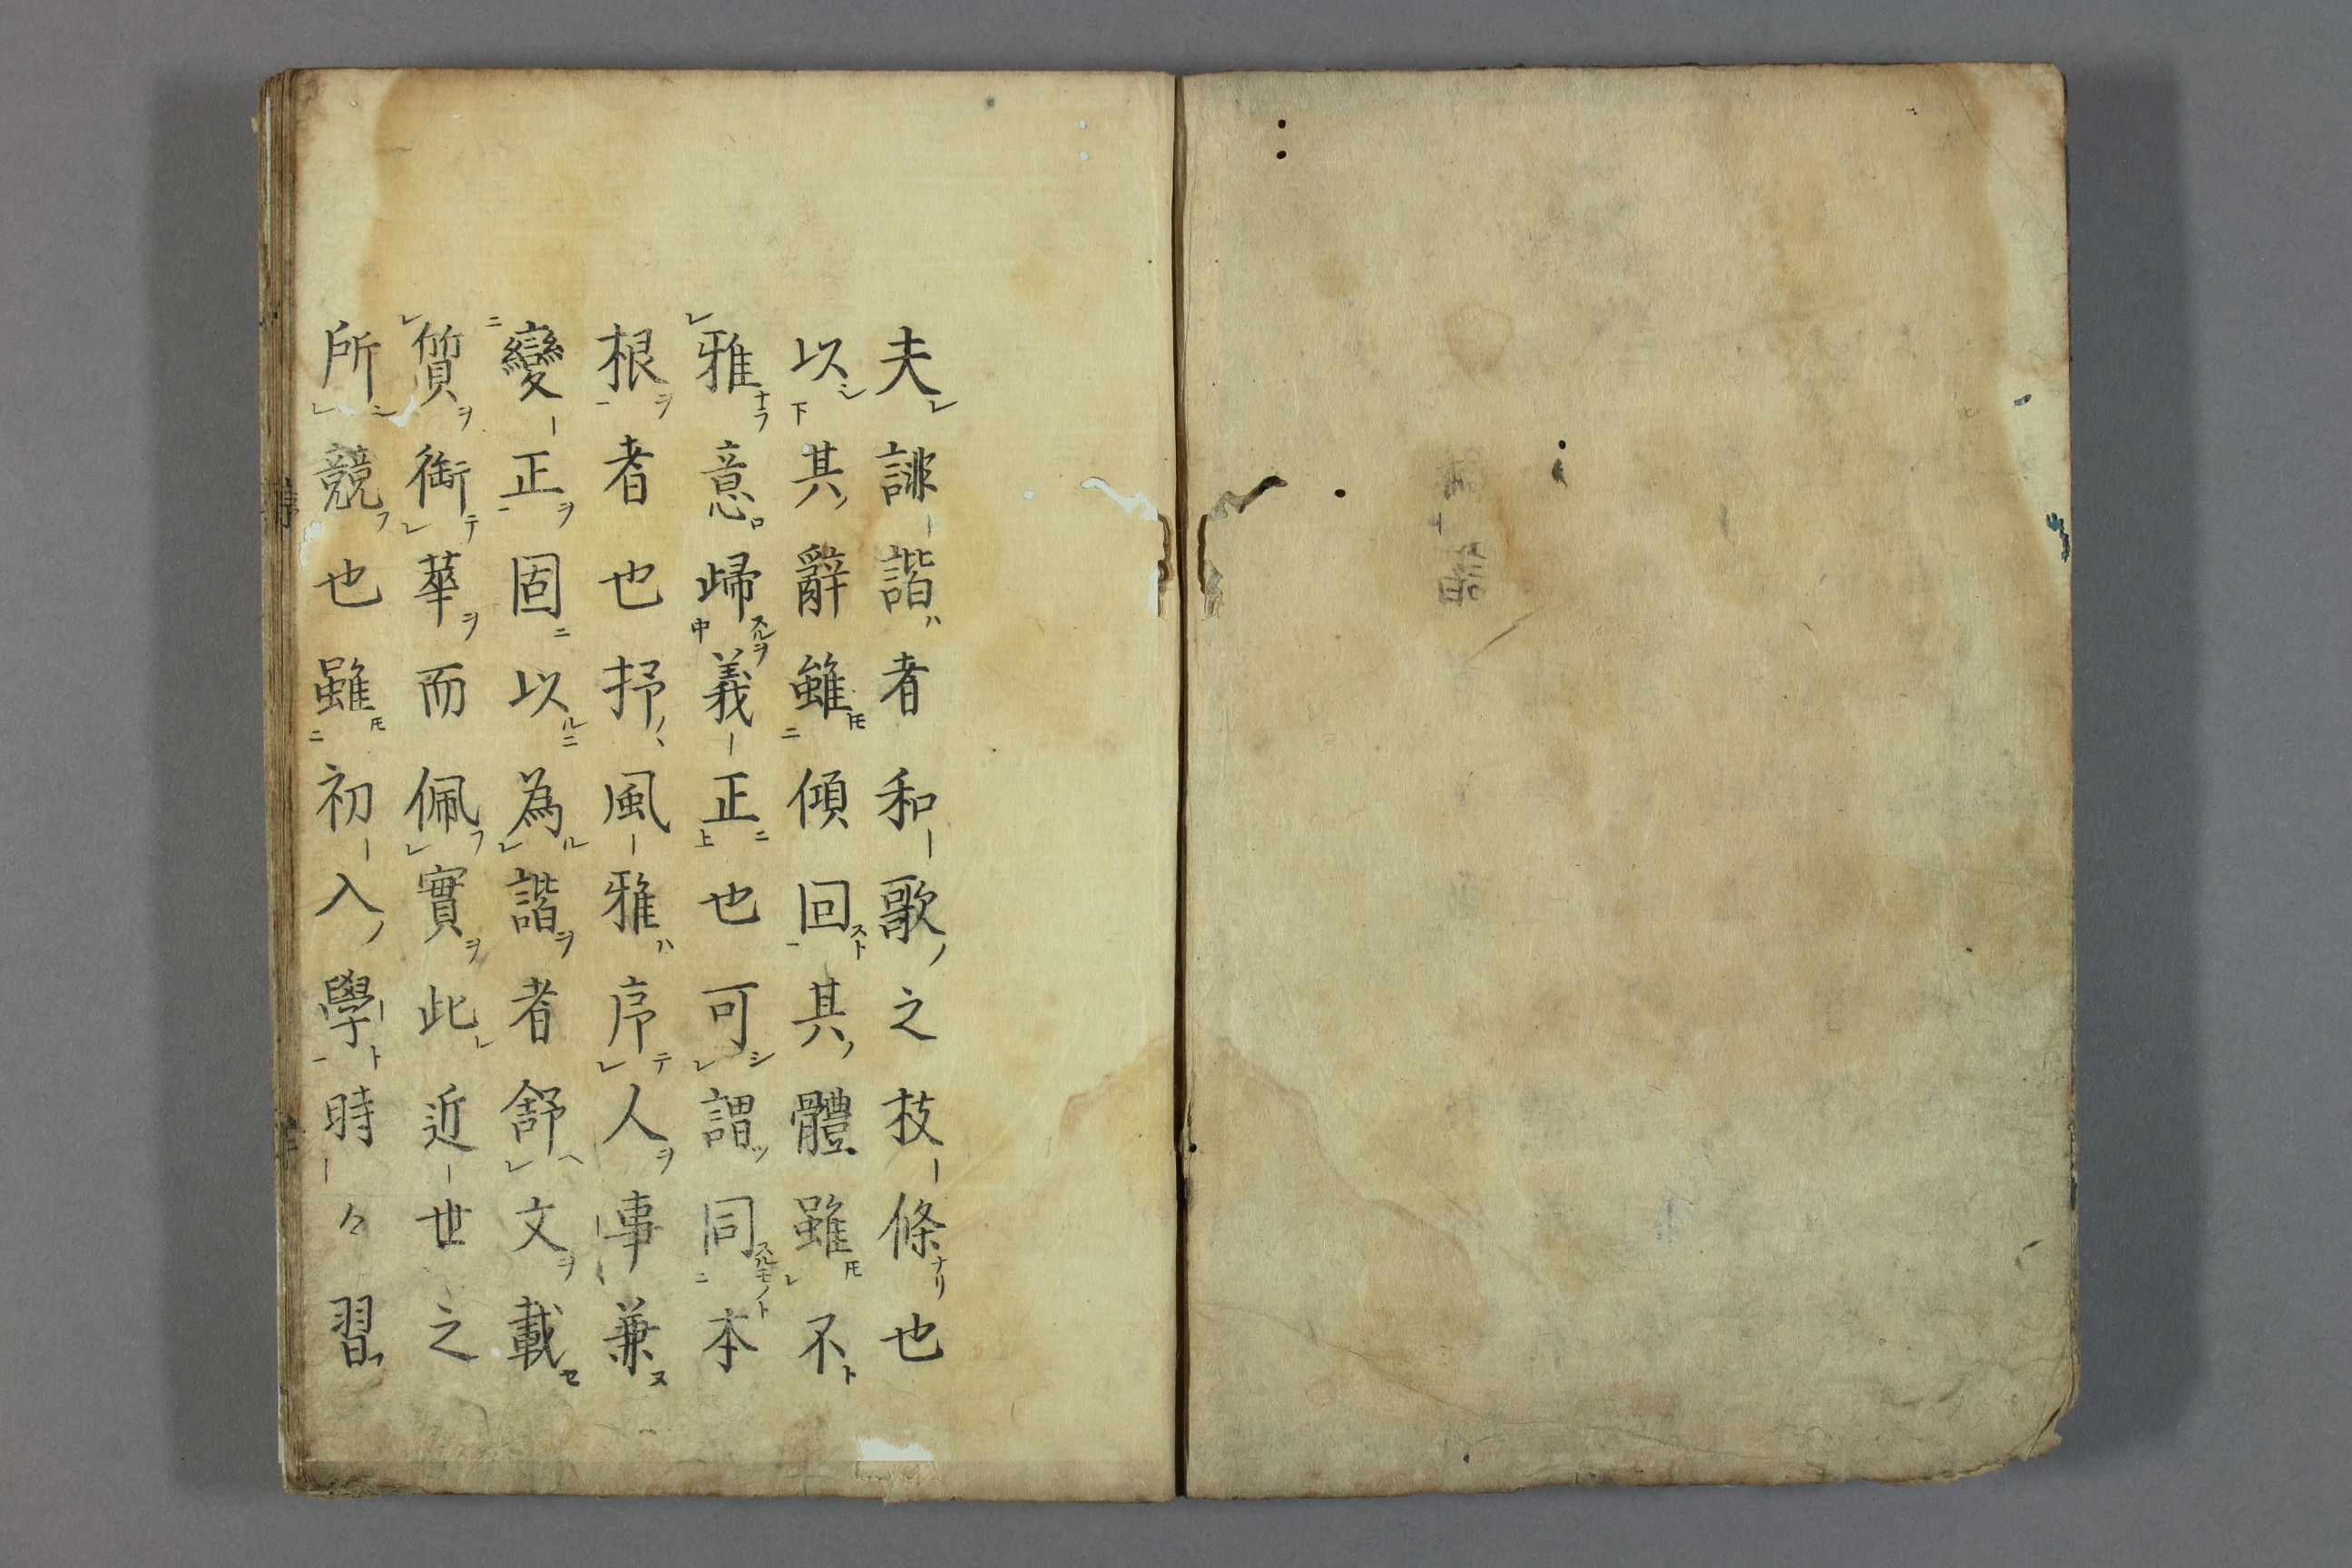 夫誹諧者和歌之枝條也
以其辭雖傾回其體雖不
雅意歸義正也可謂同本
根者也抒風雅序人事兼
變正固以為諧者舒文載
質衘華而佩實此近世之
所競也雖初入學時々習
序